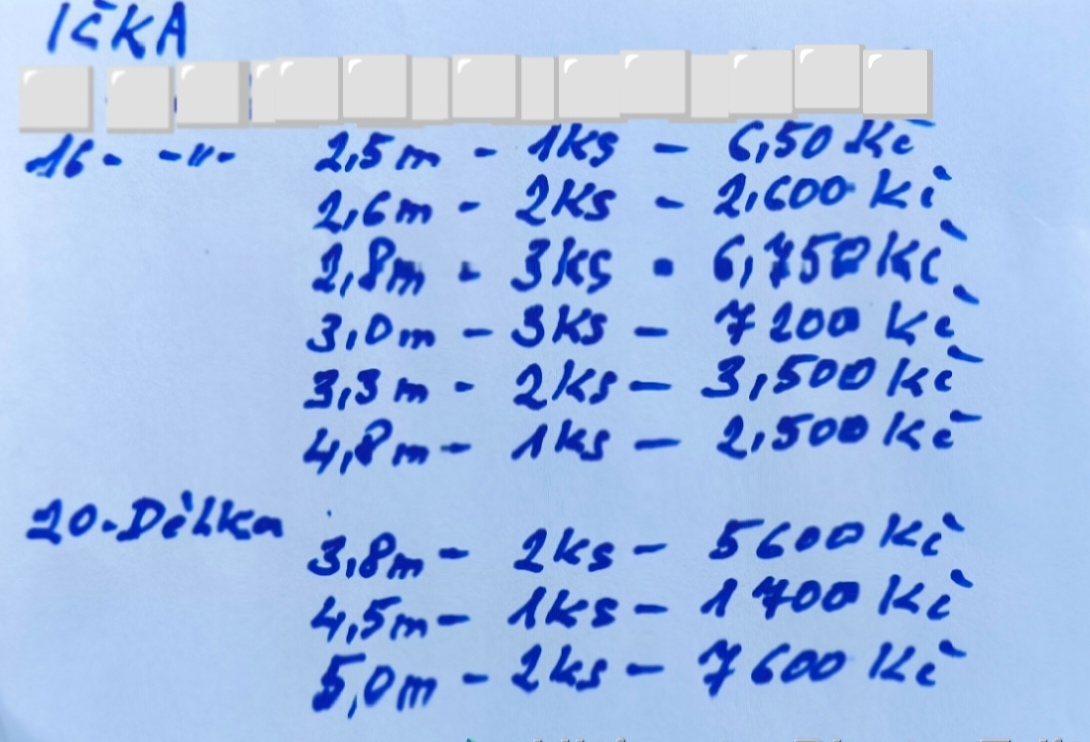 IČKA
16- -"- 2,5m - 1ks - 6,50 Kč
2,6m - 2ks - 2,600 Kč
2,8m - 3ks - 6,750 Kč
3,0m - 3ks - 7200 Kč
3,3m - 2ks - 3,500 Kč
4,8m - 1ks - 2,500 Kč
20. Délka
3,8m - 2ks - 5600 Kč
4,5m - 1ks - 1700 Kč
5,0m - 2ks - 7600 Kč